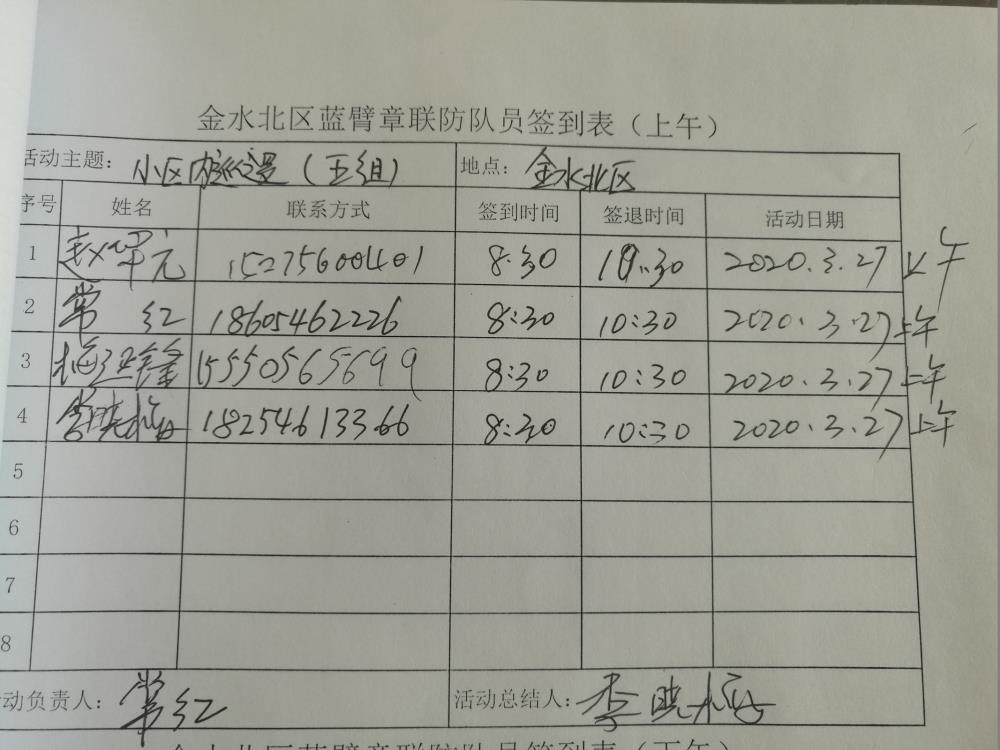 金水北区蓝臂章联防队员签到表（上午）
活动主题： 小区内巡逻（五组） 地点： 金水北区
序号 姓名 联系方式 签到时间 签退时间 活动日期
1 赵军元 15275600401 8:30 10:30 2020.3.27 上午
2 常红 18605462226 8:30 10:30 2020.3.27 上午
3 15550565699 8:30 10:30 2020.3.27 上午
4 李晓梅 18254613366 8:30 10:30 2020.3.27 上午
5
6
7
8
动负责人： 常红 活动总结人： 李晓梅
金水北区蓝臂章联防队员签到表（下午）